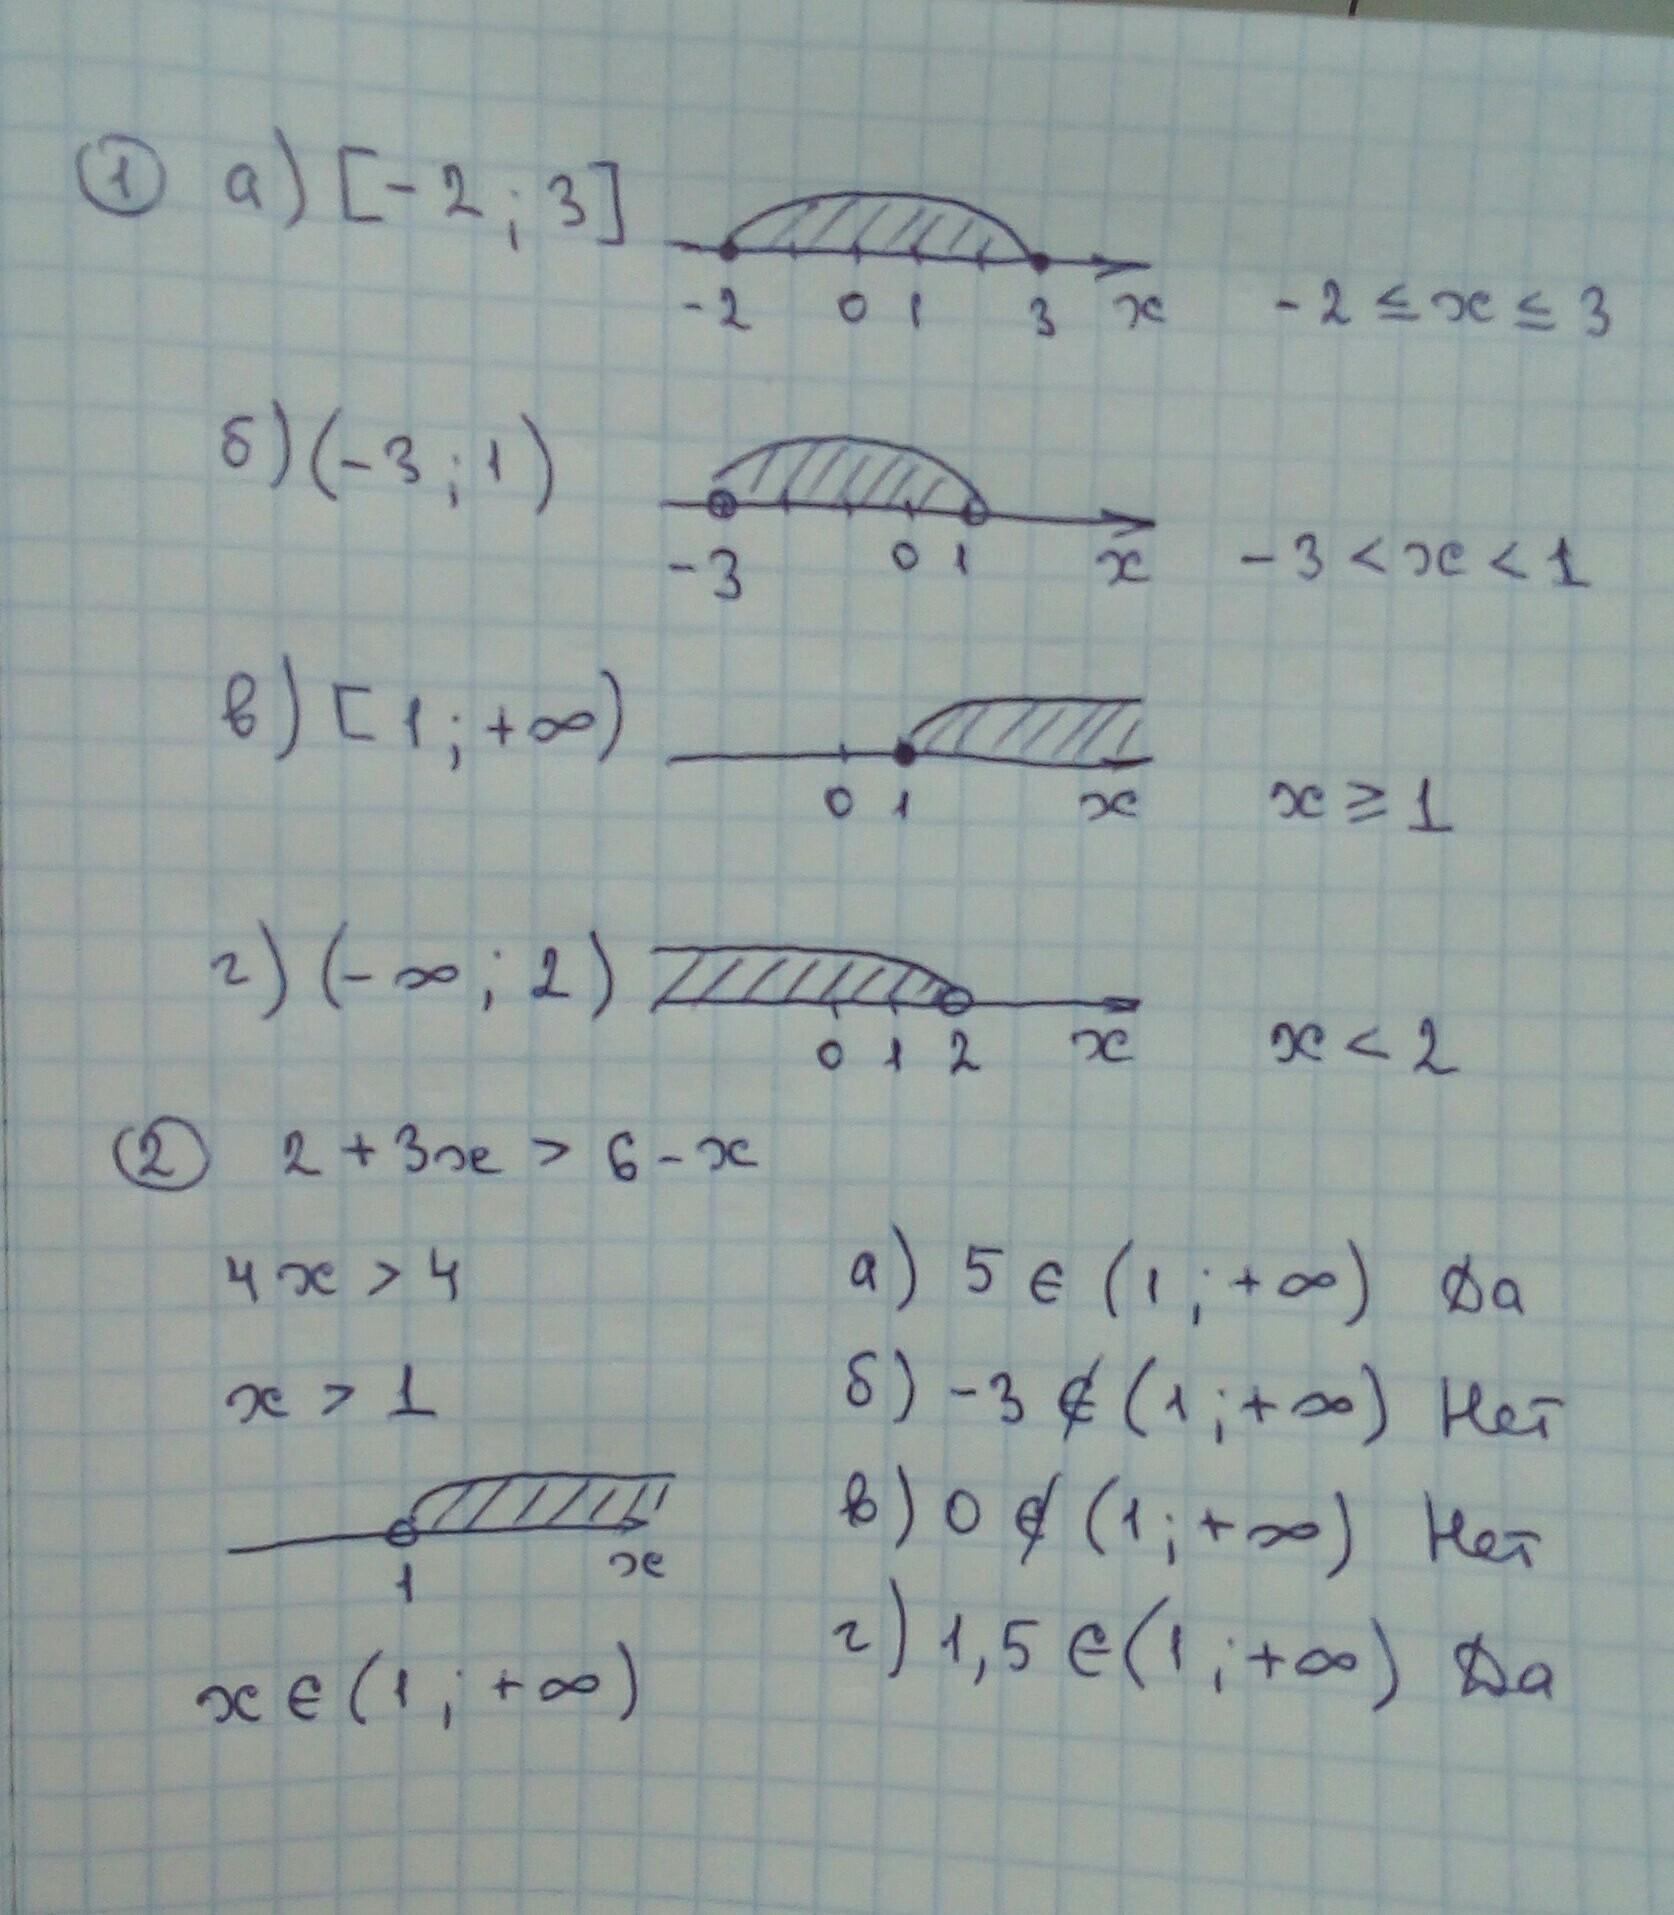 ① а) [-2; 3]
-2 0 1 3 x -2 ≤ x ≤ 3
б) (-3; 1)
-3 0 1 x -3 < x < 1
в) [1; +∞)
0 1 x x ≥ 1
г) (-∞; 2)
0 1 2 x x < 2
② 2 + 3x > 6 - x
4x > 4
x > 1
1 x
x ∈ (1; +∞)
а) 5 ∈ (1; +∞) Да
б) -3 ∉ (1; +∞) Нет
в) 0 ∉ (1; +∞) Нет
г) 1,5 ∈ (1; +∞) Да